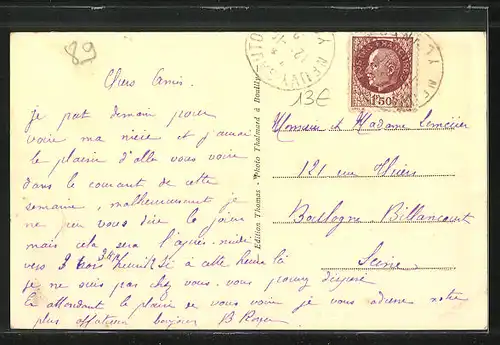 89
Chers Amis.
je part demain pour
voire ma nièce et j'aurai
le plaisir d'aller vous voire
dans le courant de cette
semaine, malheureusement je
ne peu vous dire le jour
mais cela sera l'après-midi
vers 3 heures si à cette heure là
je ne suis pas chez vous. vous pouvez disposé
le attendant le plaisir de vous voir je vous adresse notre
plus affectueux bonjour B
Edition Thomas - Photo Thalmard à Rouilly
13€
1F50
NEUVY-SAUTO
Monsieur et Madame
121 rue
Boulogne Billancourt
Seine